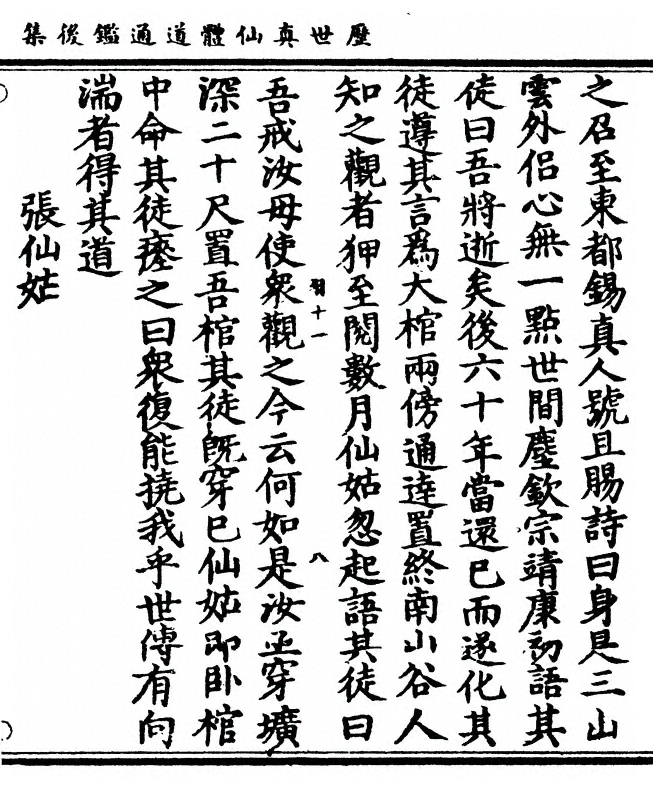 集後鑑通道體仙真世歷
之召至東都錫真人號且賜詩曰身是三山
雲外侶心無一點世間塵欽宗靖康初語其
徒曰吾將逝矣後六十年當還已而遂化其
徒遵其言為大棺兩傍通達置終南山谷人
知之觀者狎至閱數月仙姑忽起語其徒曰
羽十一
八
吾戒汝毋使衆觀之今云何如是汝亟穿壙
深二十尺置吾棺其徒既穿已仙姑即卧棺
中命其徒瘞之曰衆復能撓我乎世傳有向
湍者得其道
張仙姑